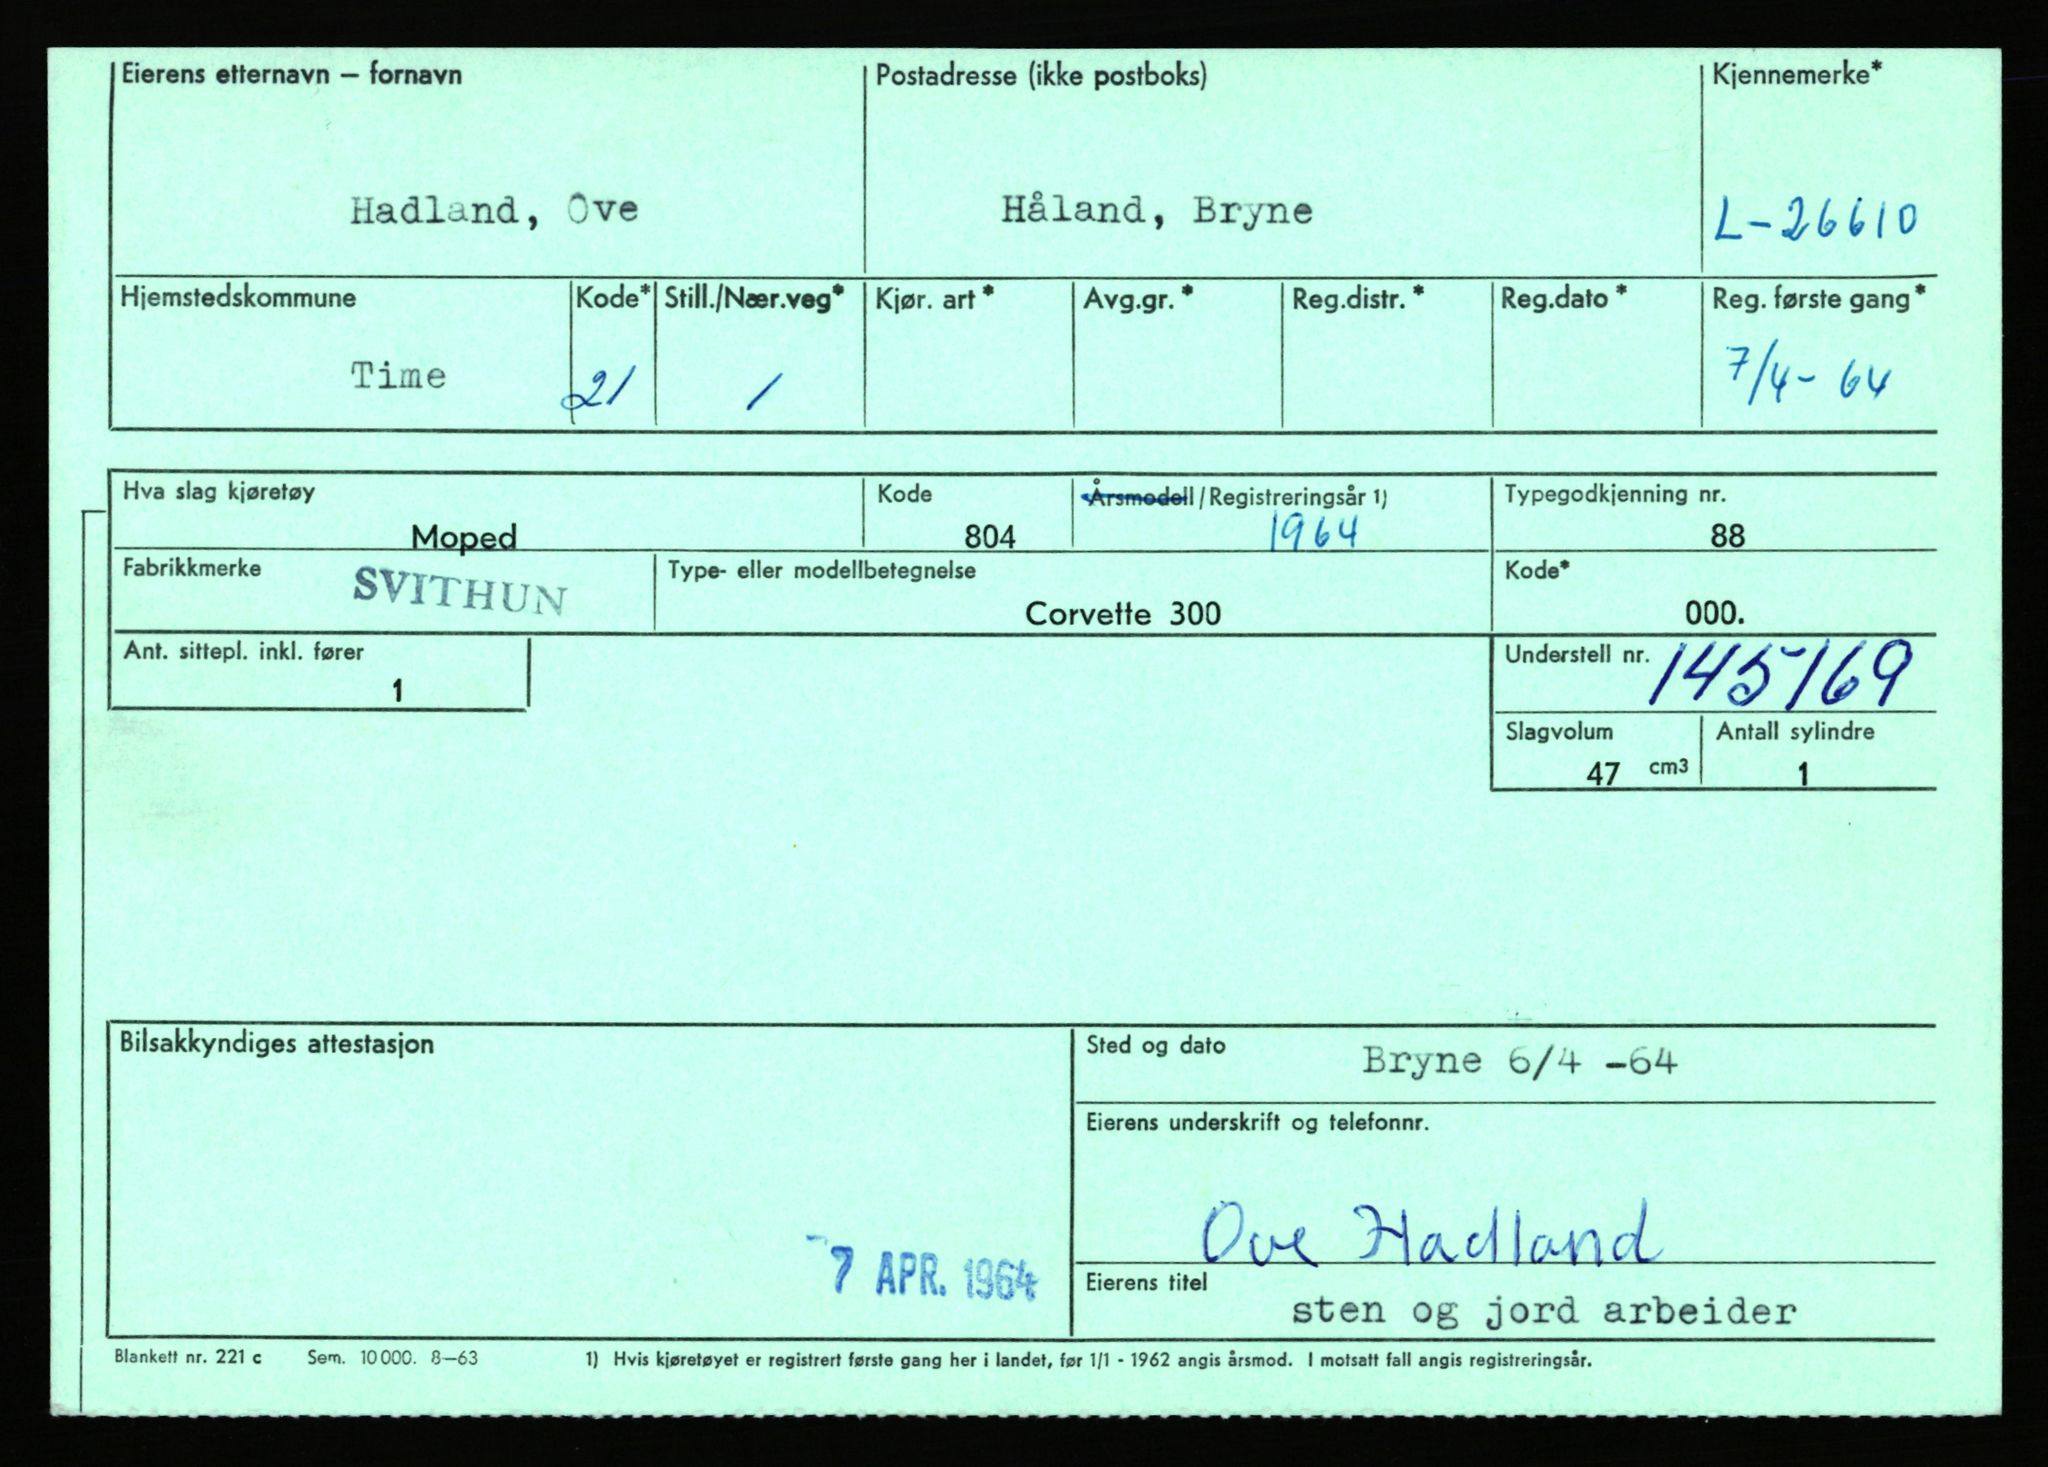 Eierens etternavn — fornavn Postadresse (ikke postboks) Kjennemerke*
Hadland, Ove Håland, Bryne L-26610
Hjemstedskommune Kode* Still./Nær.veg* Kjør. art* Avg.gr.* Reg.distr.* Reg.dato* Reg. første gang*
Time 21 1 7/4- 64
Hva slag kjøretøy Kode Årsmodell/Registreringsår 1) Typegodkjenning nr.
Moped 804 1964 88
Fabrikkmerke SVITHUN Type- eller modellbetegnelse Kode*
Corvette 300 000.
Ant. sittepl. inkl. fører Understell nr. 145169
1
Slagvolum Antall sylindre
47 cm3 1
Bilsakkyndiges attestasjon Sted og dato Bryne 6/4 -64
Eierens underskrift og telefonnr.
Ove Hadland
7 APR. 1964
Eierens titel
sten og jord arbeider
Blankett nr. 221 c Sem. 10 000. 8—63 1) Hvis kjøretøyet er registrert første gang her i landet, før 1/1 - 1962 angis årsmod. I motsatt fall angis registreringsår.